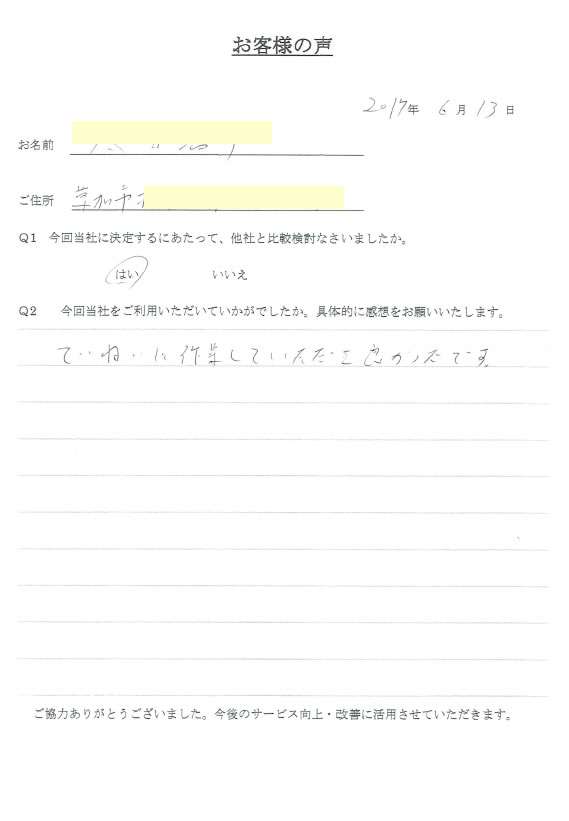 お客様の声
2017年 6月13日
お名前
ご住所 草加市
Q1 今回当社に決定するにあたって、他社と比較検討なさいましたか。
はい いいえ
Q2 今回当社をご利用いただいていかがでしたか。具体的に感想をお願いいたします。
ていねいに作業していただき良かったです。
ご協力ありがとうございました。今後のサービス向上・改善に活用させていただきます。